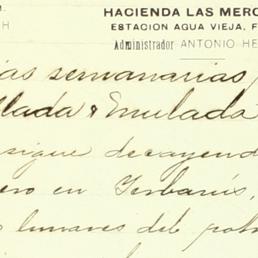 H
HACIENDA LAS MERC
ESTACION AGUA VIEJA, F
Administrador ANTONIO HE
ias semanarias
lada & Emulada
sigue decayend
ero en
lunares del potr